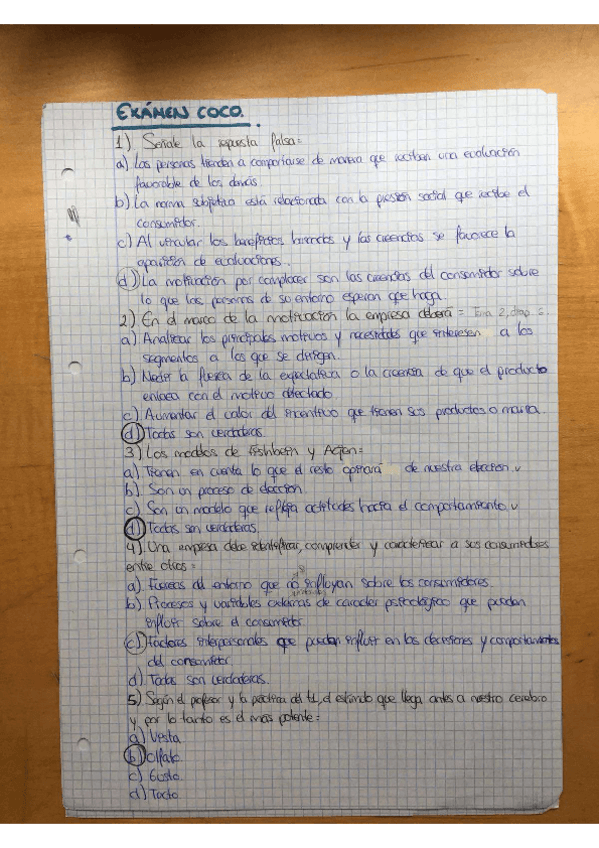 EXÁMEN COCO.
1) Señale la respuesta falsa:
a) Las personas tienden a comportarse de manera que reciban una evaluación
favorable de los demás.
b) La norma subjetiva está relacionada con la presión social que recibe el
consumidor.
c) Al vincular los beneficios buscados y las creencias se favorece la
aparición de evaluaciones.
d) La motivación por complacer son las creencias del consumidor sobre
lo que las personas de su entorno esperan que haga.
2) En el marco de la motivación la empresa deberá = Tema 2, diap 6.
a) Analizar los principales motivos y necesidades que interesen a los
segmentos a los que se dirigen.
b) Medir la fuerza de la expectativa o la creencia de que el producto
enlaza con el motivo detectado.
c) Aumentar el valor del incentivo que tienen sus productos o marca.
d) Todas son verdaderas.
3) Los modelos de Fishbein y Ajzen:
a) Tienen en cuenta lo que el resto opinará de nuestra elección. v
b) Son un proceso de elección.
c) Son un modelo que refleja actitudes hacia el comportamiento. v
d) Todas son verdaderas.
4) Una empresa debe identificar, comprender y caracterizar a sus consumidores
entre otros:
a) Fuerzas del entorno que no influyan sobre los consumidores.
b) Procesos y variables externas de carácter psicológico que puedan
influir sobre el consumidor.
c) Factores interpersonales que puedan influir en las decisiones y comportamientos
del consumidor.
d) Todas son verdaderas.
5) Según el profesor y la práctica del t.1, el estímulo que llega antes a nuestro cerebro
y por lo tanto es el más potente:
a) Vista
b) Olfato
c) Gusto
d) Tacto